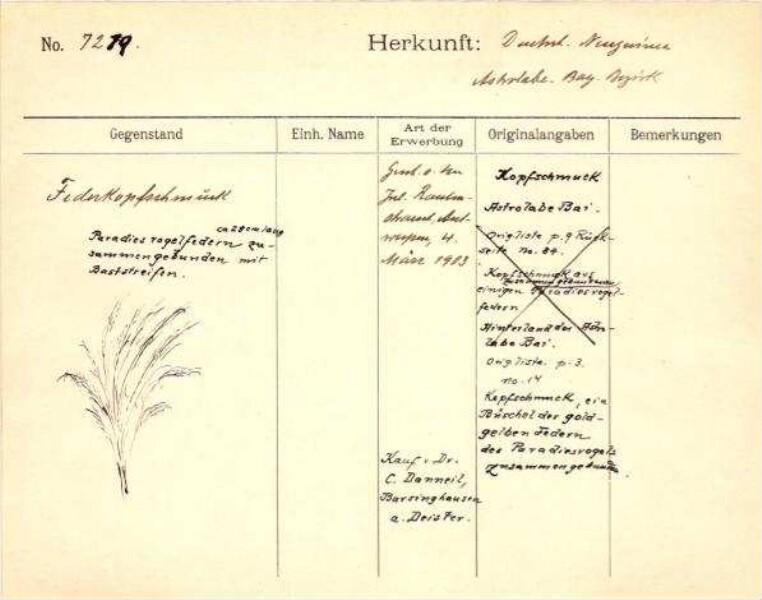 No. 7279.
Herkunft: Deutsch. Neuguinea
Astrolabe-Bay-Bezirk
Gegenstand
Einh. Name
Art der
Erwerbung
Originalangaben
Bemerkungen
Federkopfschmuck
ca 28 cm lang
Paradiesvogelfedern zu-
sammengebunden mit
Baststreifen.
März 1903
Kauf v. Dr.
C. Danneil,
Barsinghausen
a. Deister.
Kopfschmuck
Astrolabe Bai.
Origliste p. 9 Rück-
seite No. 84.
Kopfschmuck aus
zusammengebundenen
einigen Paradiesvogel-
federn
Hinterland der Astro-
labe Bai.
Origliste. p. 3.
no. 14
Kopfschmuck, ein
Büschel der gold-
gelben Federn
des Paradiesvogels
zusammengebunden